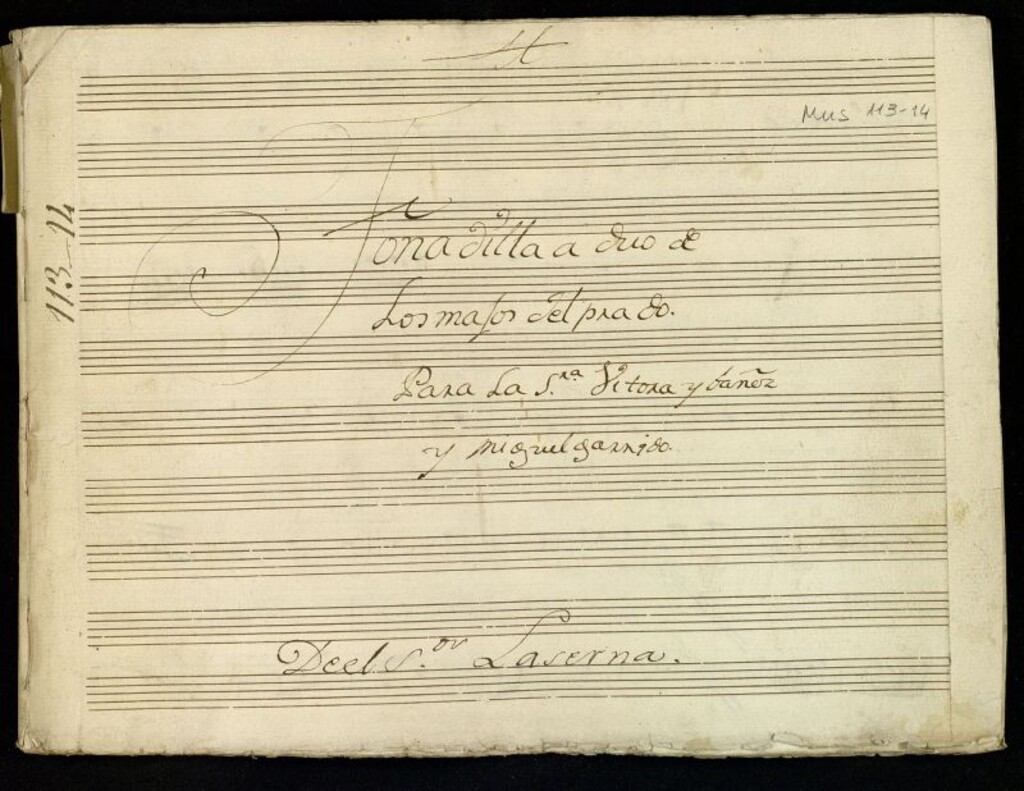 Mus 113-14
113-14
Tonadilla a duo de
Los majos del prado.
Para La S.ra Vitora ybañez
y miguel garrido.
De el S.or Laserna.